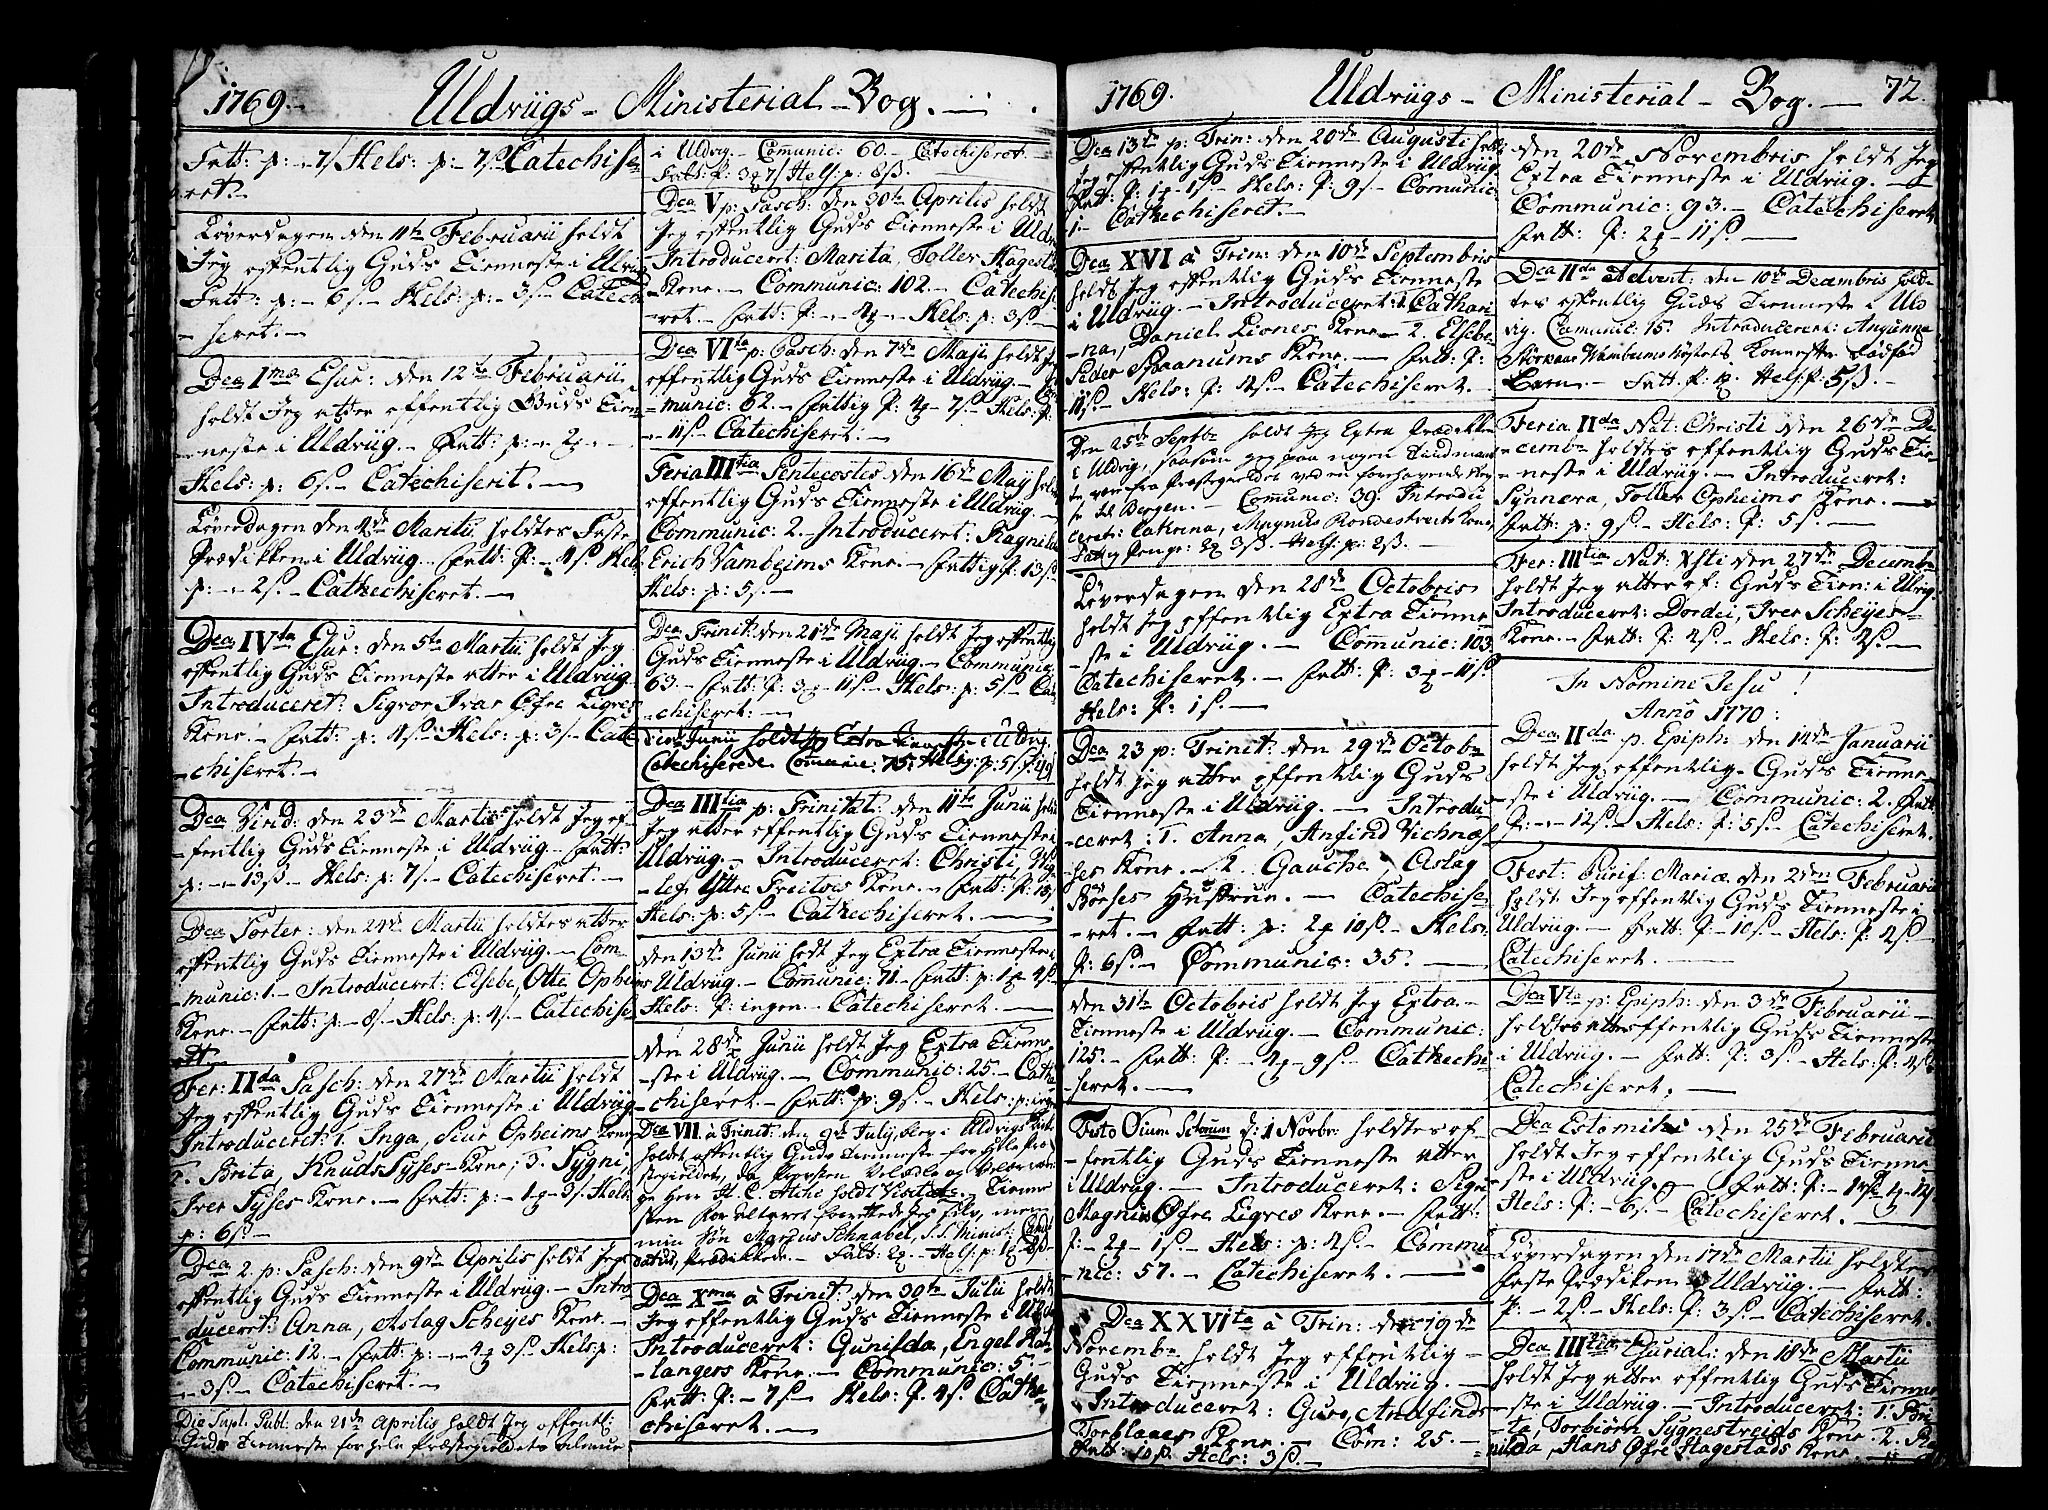 1769. Uldviigs - Ministerial - Bog.
Fatt: p: - 7/ Hels: p: - 7/ Catechise-
ret.
Løverdagen den 11te Februarii holdt
Jeg offentlig Guds Tienneste i Ulvi
Fatt: p: - 6ß. Hels: p: - 3ß. Catech
- seret. -
Dca 1ma Esur: den 12te Februarii
holdt Jeg atter offentlig Guds Tien-
neste i Uldviig. - Fatt: p: - 2ꝗ -
Hels: p: 6ß - Catechiserit. -
Løverdagen den 4de Martii holdtes Faste
Prædikken i Uldviig. - Fatt: P: - 4ß Hels
p: - 2ß. - Cathechiseret. -
Dca IVta Esur: den 5te Martii holdt Jeg
offentlig Guds Tienneste atter i Uldviig
Introduceret: Sigvor Ivar Øfre Ligres
Kone. - Fatt: p: 4ß - Hels: p: 3/. - Cate
- chiseret. -
Dca Virid: den 23de Martii holdt Jeg of-
- fentlig Guds Tienneste i Uldviig - Fatt:
p: - 13ß. - Hels: p: 7/. - Catechiseret. -
Dca Porter: den 24de Martii holdtes atter
offentlig Guds Tienneste i Uldviig. - Com-
munic: 1. - Introduceret: Elsebe, Otte Opheims
Kone. - Fatt: p: - 8/ - Hels: p: 4/. - Catechise-
Fer: IIda Pasch: den 27de Martii holdt
Jeg offentlig Guds Tienneste i Uldviig
Introduceret: 1. Inga, Siur Opheims Kone
2. Brita, Knuds Syses Kone; 3. Sygni,
Iver Syses Kone. - Fatt: p: - 1ꝗ - 3/. Hels
p: 6ß -
Dca 2. p: Pasch: den 9de Aprilis holdt Jeg
offentlig Guds Tienneste i Uldviig. - Intro
- duceret: Anna, Aslag Scheyes Kone. -
Communic: 12. - Fatt: p: - 4ꝗ 3ß Hels: p:
- 3ß - Catechiseret. -
Die Supl. Publ: den 21de Aprilis holdt Jeg offentl:
Guds Tienneste for hele Præstegieldets Almue
i Uldvig - Communic: 60. - Catechiseret.
Fatt: P: 3ꝗ 7/ Hels: p: 8ß.
Dca V p: Pasch: den 30te Aprilis holdt
Jeg offentlig Guds Tienneste i Uldv
Introduceret: Marita, Toller Hagesta
- Kone. - Communic: 102. - Catechise
ret. - Fatt: P: - 4ꝗ - Hels: p: 3ß. -
Dca VIta p: Pasch: den 7de Maji holdt Jeg
offentlig Guds Tienneste i Uldviig. -
- munic: 62. - Fattig P: 4ꝗ - 7ß - Hels: p:
- 11ß - Catechiseret. -
Feria IIItia Pentecostes den 16de Maji holdt
offentlig Guds Tienneste i Uldviig. -
Communic: 2. - Introduceret: Ragnilda
Erich Vambeims Kone. - Fattig P: 13ß
Hels: p: 5ß. -
Dca Trinit: den 21de Maji holdt Jeg offentlig
Guds Tienneste i Uldviig. - Communic
63. - Fatt: P: 3ꝗ - 11ß - Hels: p: 5ß - Cate
- chiseret. -
Junii holdt Jeg Extra Tienneste i Uldvig.
Catechiserede Communic: 75.
Dca IIItia p: Trinitat: den 11te Junii holdt
Jeg atter offentlig Guds Tienneste i
Uldviig. - Introduceret: Christi, Wig
- lef Yttre Freitves Kone. - Fatt: P: 13/
Hels: p: 5ß - Cathechiseret. -
den 13de Junii holdt Jeg Extra Tienneste i
Uldviig. - Communic: 71. - Fatt: p: 1ꝗ 4ß
Hels: P: ingen - Catechiseret. -
den 28de Junii holdt Jeg Extra Tienne-
- ste i Uldvig. - Communic: 25. - Cathe
- chiseret. - Fatt: p: 9ß. - Hels: p: ingen
Dca VII à Trinit: den 9de July blev i Uldvigs Kirke
holdet offentlig Guds Tienneste for hele Præ-
stegieldet, da Provsten Velædle og Velærværdi-
ge Herr H. C. Atche holdt Visitats. - Tienne
sten for alteret forrettede Jeg selv, men
min Søn Marcus Schnabel, S.S. Minist: Candi
datus, prædikkede. - Fatt: 2ꝗ. - Hels: p: 1ꝗ 8ß.
Dca Xma à Trinit: den 30te Julii holdt
Jeg offentlig Guds Tienneste i Uldvi
Introduceret: Gunilda, Engel Hal
- langers Kone. - Communic: 5 -
Fatt: P: - 7ß - Hels: P: 4ß. Cathe
chiseret. -
1769. Uldviigs - Ministerial - Bog. - 72.
Dca 13de p: Trin: den 20de Augusti holdt
Jeg offentlig Guds Tienneste i Uldviig
Fatt: P: 1ꝗ - 1ß - Hels: P: 9/. - Comunic
1. - Cathechiseret. -
Dca XVI à Trin: den 10de Septembris
holdt Jeg offentlig Guds Tienneste
i Uldviig. - Introduceret: 1. Cathari
- na, Daniel Liones Kone - 2. Elsebe
Peder Spaanums Kone. - Fatt: P:
11ß. - Hels: P: 4ß. - Catechiseret. -
Den 25de Septbr holdt Jeg Extra Prædikken
i Uldvig, saasom jeg paa nogen Tiid maat
te være fra Præstegieldet ved en forhavende Rey-
se til Bergen. - Communic: 39. Introdu
ceret: Cathrina, Magnus Rondestveits Kone,
Fattig Penge: 2ꝗ 3ß. Hels: p: 2ß.
Løverdagen den 28de Octobris
holdt Jeg offentlig Extra Tienne-
- ste i Uldviig. - Communic: 103
Catechiseret. - Fatt: P: 3ꝗ - 11ß
Hels: P: 1ß. -
Dca 23 p: Trinit: den 29de Octob:
holdt Jeg atter offentlig Guds
Tienneste i Uldviig. - Introdu
- ceret: 1. Anna, Anfind Vichnæs
ses Kone. - 2. Gauche, Aslag
Børses Hustrue. - Catechise-
- ret. - Fatt: p: 2ꝗ 10ß. - Hels:
P: 6ß. - Communic: 35. -
den 31te Octobris holdt Jeg Extra -
Tienneste i Uldviig. - Communic:
125. - Fatt: P: - 4ꝗ - 9ß. - Cathechi-
- seret. -
Festo Oium Sctorum d: 1 Novbr: holdtes of-
- fentlig Guds Tienneste atter
i Uldviig. - Introduceret: Signi
Magnus Øfre Ligres Kone. - Fatt:
P: - 2ꝗ - 1ß. - Hels: p: 4ß. - Commu
- nic: 57. - Catechiseret. -
Dca XXVIta à Trin: den 19de
Novembr: holdt Jeg offentlig -
Guds Tienneste i Uldviig. -
Introduceret: Guro, Andfinds
Torblaaes Kone. - Com: 25. -
Fatt: 10ß. Hels: 3ß. -
den 20de Novembris holdt Jeg
Extra Tienneste i Uldviig. -
Communic: 93. - Catechiseret
Fatt: P: 2ꝗ - 11ß. -
Dca IIda Advent: den 10de Decembris hold-
tes offentlig Guds Tienneste i Uld
vig. Comunic: 15. Introduceret: Anguna
Størkaar Wambeims
Barn. - Fatt: P: 1ꝗ. Hels: P: 5ß. -
Feria IIda Nat: Christi den 26de De-
cembr: holdtes offentlig Guds Tien-
- neste i Uldviig. - Introduceret:
Synneva, Toller Opheims Kone. -
Fatt: p: 9ß. - Hels: P: 5ß. -
Fer: IIItia Nat: Xsti den 27de Decembr:
holdt Jeg atter of: Guds Tien: i Uldvig.
Introduceret: Dordei, Iver Scheyes -
Kone. - Fatt: P: 4ß - Hels: P: 4ß. -
In Nomine Jesu!
Anno 1770:
Dca IIda p. Epiph: den 14de Januarii
holdt Jeg offentlig Guds Tienne-
- ste i Uldviig. - Communic: 2. Fatt:
P: - 12ß. - Hels: P: 5ß. - Catechiseret.
Fest: Purif: Mariæ den 2den Februarii
holdt Jeg offentlig Guds Tienneste i
Uldviig. - Fatt: P: - 10ß - Hels: P: 4ß -
Catechiseret. -
Dca Vta p: Epiph: den 3de Februarii -
holdtes atter offentlig Guds Tienneste
i Uldviig. - Fatt: P: 3ß - Hels: P: 4ß
Catechiseret. -
Dca Estomihi den 25de Februarii
holdt Jeg offentlig Guds Tienne-
- ste i Uldviig. - Fatt: P: -
Hels: P: - 6ß - Catechiseret. -
Løverdagen den 17de Martii holdtes
Faste Prædiken i Uldviig. - Fatt:
P: - 2ß - Hels: P: 3ß. - Catechiseret.
Dca IIItia Esurial: den 18de Martii
holdt Jeg atter offentlig Guds Tienne-
- ste i Uldviig. - Introduceret: 1. Bri-
ta, Torbiørn Sygnestveids Kone 2. Ra
nilda, Hans Øfre Hagestads Kone. -